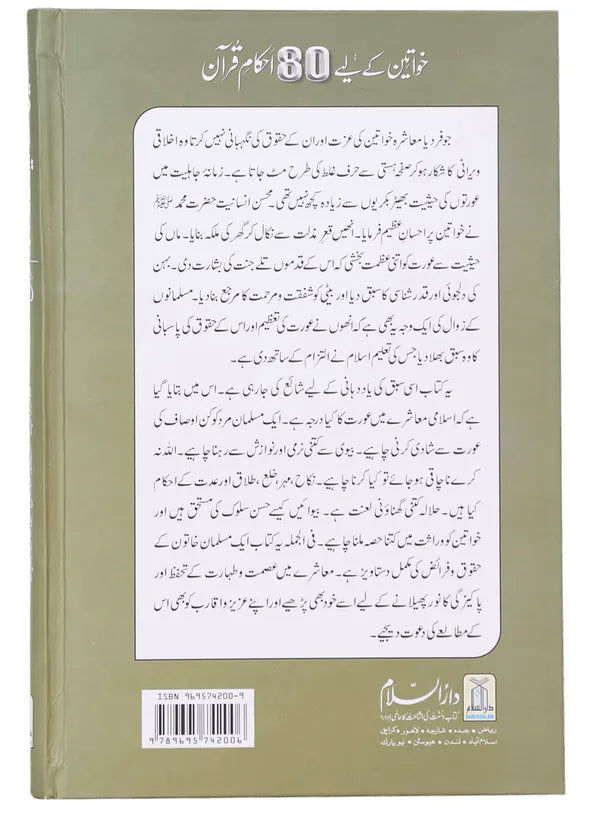 خواتین کے لیے 80 احکامِ قرآن
جو فرد یا معاشرہ خواتین کی عزت اور ان کے حقوق کی نگہبانی نہیں کرتا وہ اخلاقی
ویرانی کا شکار ہو کر صفحۂ ہستی سے حرف غلط کی طرح مٹ جاتا ہے۔ زمانۂ جاہلیت میں
عورتوں کی حیثیت بھیڑ بکریوں سے زیادہ کچھ نہیں تھی۔ محسن انسانیت حضرت محمد ﷺ
نے خواتین پر احسانِ عظیم فرمایا۔ انھیں قعرِ مذلت سے نکال کر گھر کی ملکہ بنایا۔ ماں کی
حیثیت سے عورت کو اتنی عظمت بخشی کہ اس کے قدموں تلے جنت کی بشارت دی۔ بہن
کی دلجوئی اور قدر شناسی کا سبق دیا اور بیٹی کو شفقت و مرحمت کا مرجع بنا دیا۔ مسلمانوں
کے زوال کی ایک وجہ یہ بھی ہے کہ انھوں نے عورت کی تعظیم اور اس کے حقوق کی پاسبانی
کا وہ سبق بھلا دیا جس کی تعلیم اسلام نے التزام کے ساتھ دی ہے۔
یہ کتاب اسی سبق کی یاد دہانی کے لیے شائع کی جا رہی ہے۔ اس میں بتایا گیا
ہے کہ اسلامی معاشرے میں عورت کا کیا درجہ ہے۔ ایک مسلمان مرد کو کن اوصاف کی
عورت سے شادی کرنی چاہیے۔ بیوی سے کتنی نرمی اور نوازش سے رہنا چاہیے۔ اللہ نہ
کرے ناچاقی ہو جائے تو کیا کرنا چاہیے۔ نکاح، مہر، خلع، طلاق اور عدت کے احکام
کیا ہیں۔ حلالہ کتنی گھناؤنی لعنت ہے۔ بیوائیں کیسے حسن سلوک کی مستحق ہیں اور
خواتین کو وراثت میں کتنا حصہ ملنا چاہیے۔ فی الجملہ یہ کتاب ایک مسلمان خاتون کے
حقوق و فرائض کی مکمل دستاویز ہے۔ معاشرے میں عصمت و طہارت کے تحفظ اور
پاکیزگی کا نور پھیلانے کے لیے اسے خود بھی پڑھیے اور اپنے عزیز و اقارب کو بھی اس
کے مطالعے کی دعوت دیجیے۔
ISBN 969574200-9
9 789695 742006
دارالسلام
کتاب و سنت کی اشاعت کا عالمی ادارہ
ریاض • جدہ • شارجہ • لاہور • کراچی
اسلام آباد • لندن • ہیوسٹن • نیو یارک
دارالسلام
DARUSSALAM